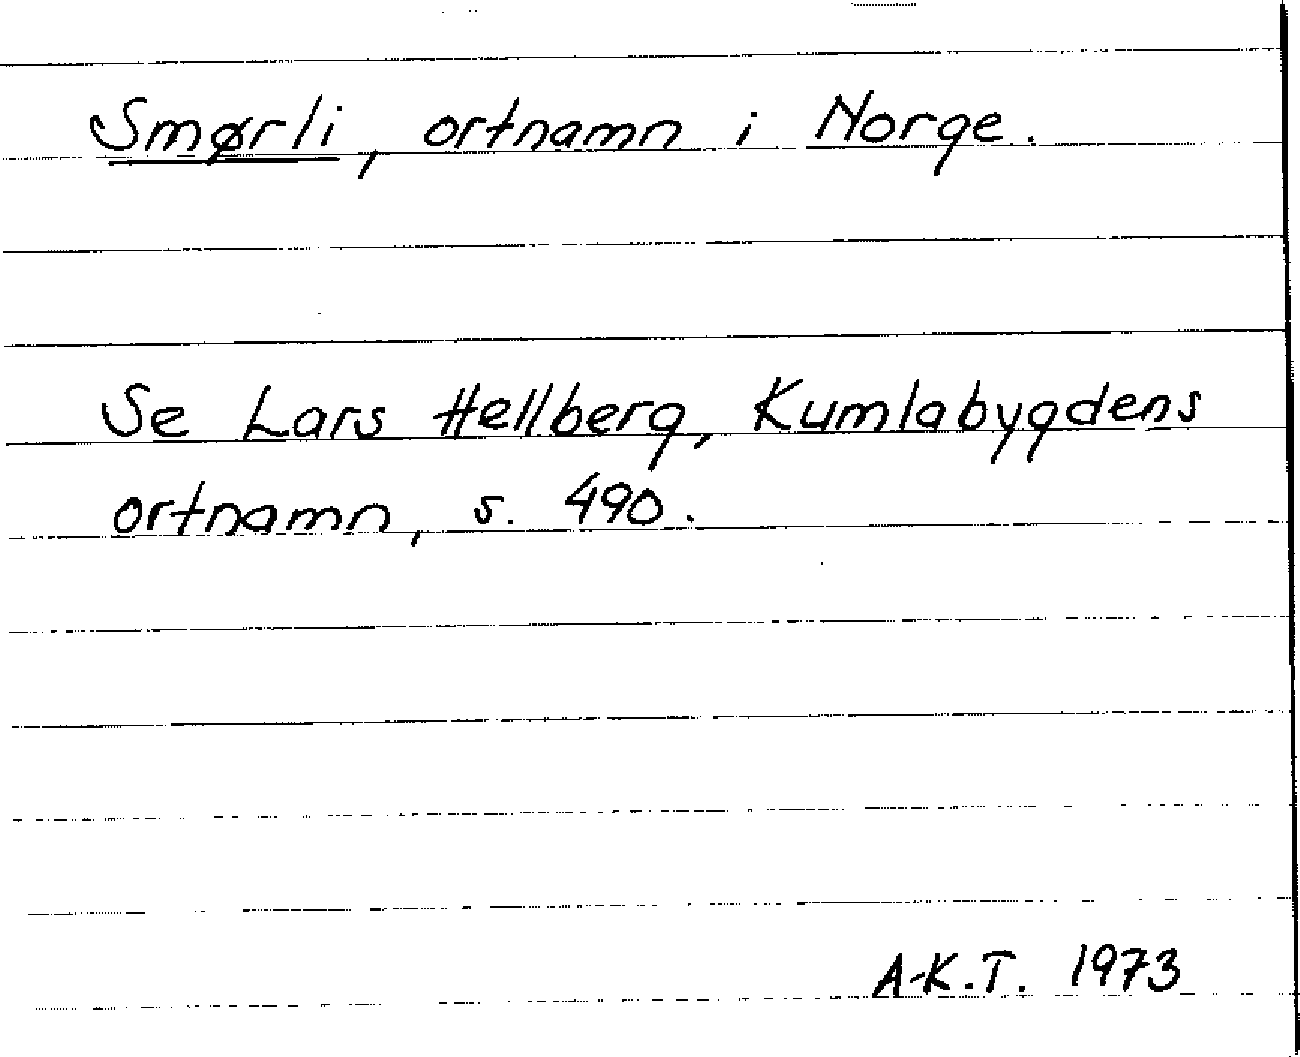 Smørli, ortnamn i Norge.
Se Lars Hellberg, Kumlabygdens
ortnamn, s. 490.
A-K.T. 1973